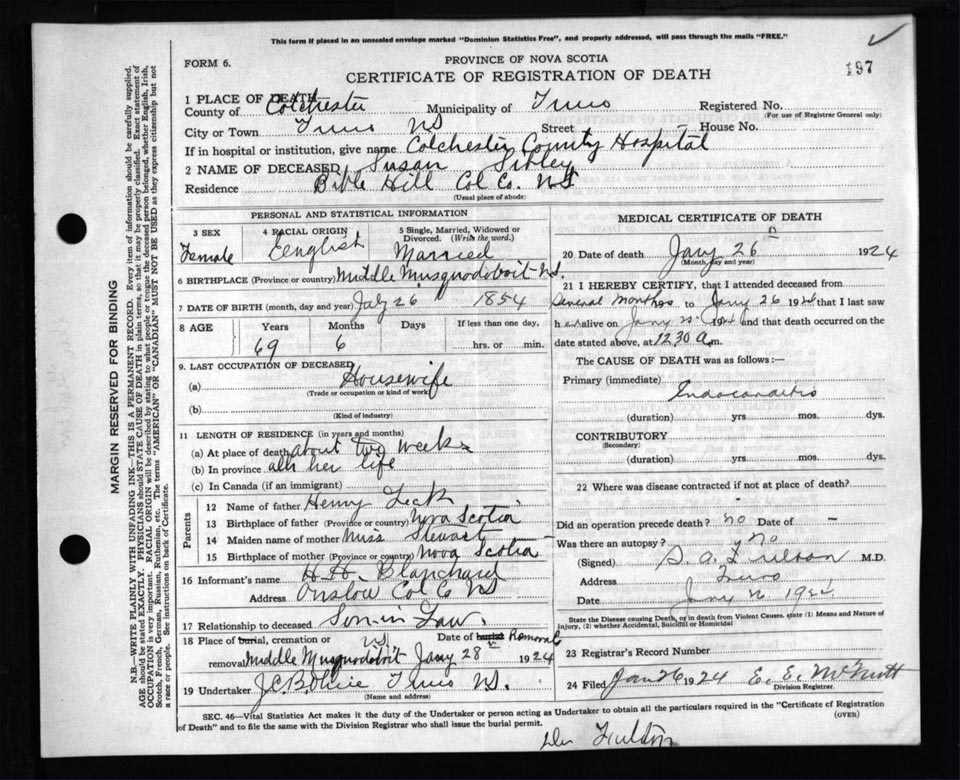 This form if placed in an unsealed envelope marked "Dominion Statistics Free", and properly addressed, will pass through the mails "FREE."
197
FORM 6.
PROVINCE OF NOVA SCOTIA
CERTIFICATE OF REGISTRATION OF DEATH
1 PLACE OF DEATH—
County of Colchester Municipality of Truro Registered No.
(For use of Registrar General only)
City or Town Truro NS Street House No.
If in hospital or institution, give name Colchester County Hospital
2 NAME OF DECEASED Susan Sibley
Residence Bible Hill Col Co. NS
(Usual place of abode)
PERSONAL AND STATISTICAL INFORMATION
3 SEX 4 RACIAL ORIGIN 5 Single, Married, Widowed or Divorced. (Write the word.)
Female English Married
6 BIRTHPLACE (Province or country) Middle Musquodoboit NS.
7 DATE OF BIRTH (month, day and year) July 26 1854
8 AGE Years Months Days If less than one day,
69 6 hrs. or min.
9. LAST OCCUPATION OF DECEASED
(a) Housewife
(Trade or occupation or kind of work)
(b)
(Kind of industry)
11 LENGTH OF RESIDENCE (in years and months)
(a) At place of death about two weeks
(b) In province all her life
(c) In Canada (if an immigrant)
Parents
12 Name of father Henry Leck
13 Birthplace of father (Province or country) Nova Scotia
14 Maiden name of mother Miss Stewart
15 Birthplace of mother (Province or country) Nova Scotia
16 Informant's name H.H. Blanchard
Address Onslow Col Co NS
17 Relationship to deceased Son in Law
18 Place of burial, cremation or NS Date of burial Removal
removal Middle Musquodoboit Jany 28 1924
19 Undertaker Truro NS.
(Name and address)
MEDICAL CERTIFICATE OF DEATH
20 Date of death Jany 26 1924
(Month, day and year)
21 I HEREBY CERTIFY, that I attended deceased from
Several Months to Jany 26 1924 that I last saw
h er alive on Jany 1924 and that death occurred on the
date stated above, at 12.30 a.m.
The CAUSE OF DEATH was as follows:—
Primary (immediate)
Endocarditis
(duration) yrs. mos. dys.
CONTRIBUTORY
(Secondary)
(duration) yrs. mos. dys.
22 Where was disease contracted if not at place of death?
Did an operation precede death? no Date of –
Was there an autopsy? no
(Signed) S. A. Fulton M.D.
Address Truro
Date Jany 192
State the Disease causing Death, or in death from Violent Causes, state (1) Means and Nature of Injury, (2) whether Accidental, Suicidal or Homicidal
23 Registrar's Record Number
24 Filed Jan 26 1924 E. E. McNutt
Division Registrar.
SEC. 46—Vital Statistics Act makes it the duty of the Undertaker or person acting as Undertaker to obtain all the particulars required in the "Certificate of Registration
of Death" and to file the same with the Division Registrar who shall issue the burial permit.
(OVER)
Dr Fulton
MARGIN RESERVED FOR BINDING
N.B.—WRITE PLAINLY WITH UNFADING INK—THIS IS A PERMANENT RECORD. Every item of information should be carefully supplied.
AGE should be stated EXACTLY. PHYSICIANS should STATE CAUSE OF DEATH in plain terms, so that it may be properly classified. Exact statement of
OCCUPATION is very important. RACIAL ORIGIN will be described by stating to what people or tongue the deceased person belonged, whether English, Irish,
Scotch, French, German, Russian, Ruthenian, etc. The terms "AMERICAN" OR "CANADIAN" MUST NOT BE USED as they express citizenship but not
a race or people. See instructions on back of Certificate.